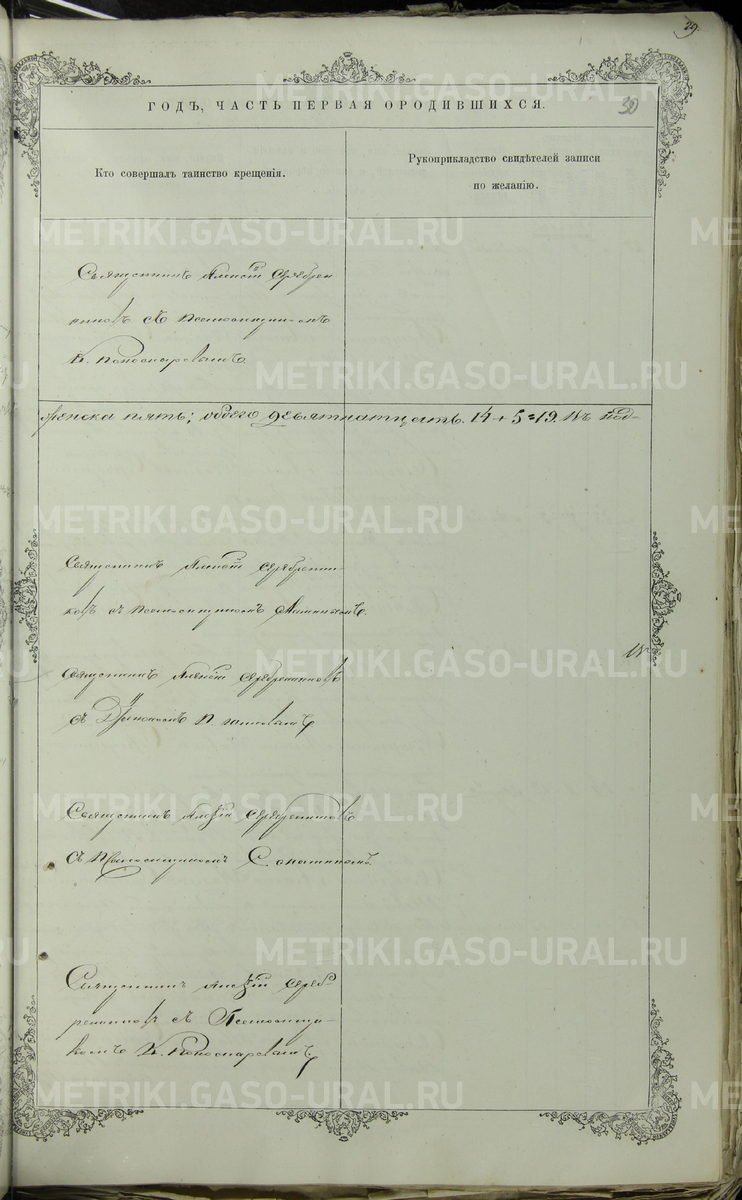 29.
30
ГОДЪ, ЧАСТЬ ПЕРВАЯ О РОДИВШИХСЯ.
Кто совершалъ таинство крещенія.
Рукоприкладство свидѣтелей записи
по желанію.
Священникъ Алексѣй Серебрен
никовъ съ псаломщикомъ
женска пять; обоего девятнатцать. 14 + 5 = 19. Въ
Священникъ Алексѣй Серебренни-
ковъ съ псаломщикомъ
Священникъ Алексѣй Серебренниковъ
съ
Священникъ Алексѣй Серебренниковъ
съ Псаломщикомъ
Священникъ Алексѣй Сереб
ренниковъ съ Псаломщи-
комъ
METRIKI.GASO-URAL.RU